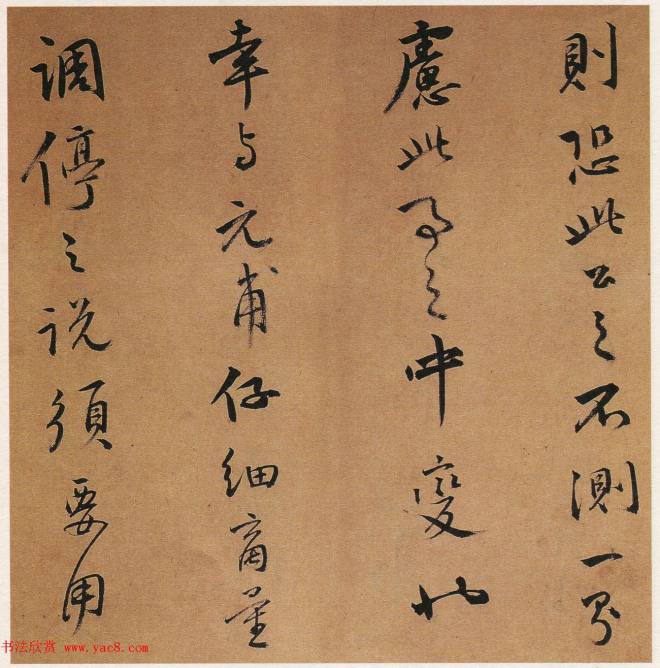 則恐此公之不測一可
慮此事之中變也
幸与元甫仔細商量
調停之説須要用
书法欣赏 www.yac8.com